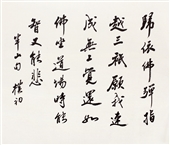 歸依佛彈指
越三祇願我速
成無上覺還如
佛坐道場時能
智又能悲
半山句 樸初